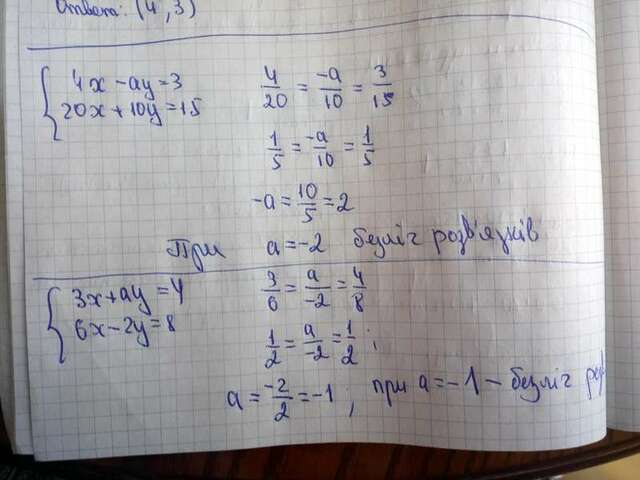 Відповідь: (4; 3)
{ 4x - ay = 3
20x + 10y = 15
4/20 = -a/10 = 3/15
1/5 = -a/10 = 1/5
-a = 10/5 = 2
При a = -2 безліч розв'язків
{ 3x + ay = 4
6x - 2y = 8
3/6 = a/-2 = 4/8
1/2 = a/-2 = 1/2;
a = -2/2 = -1; при a = -1 - безліч